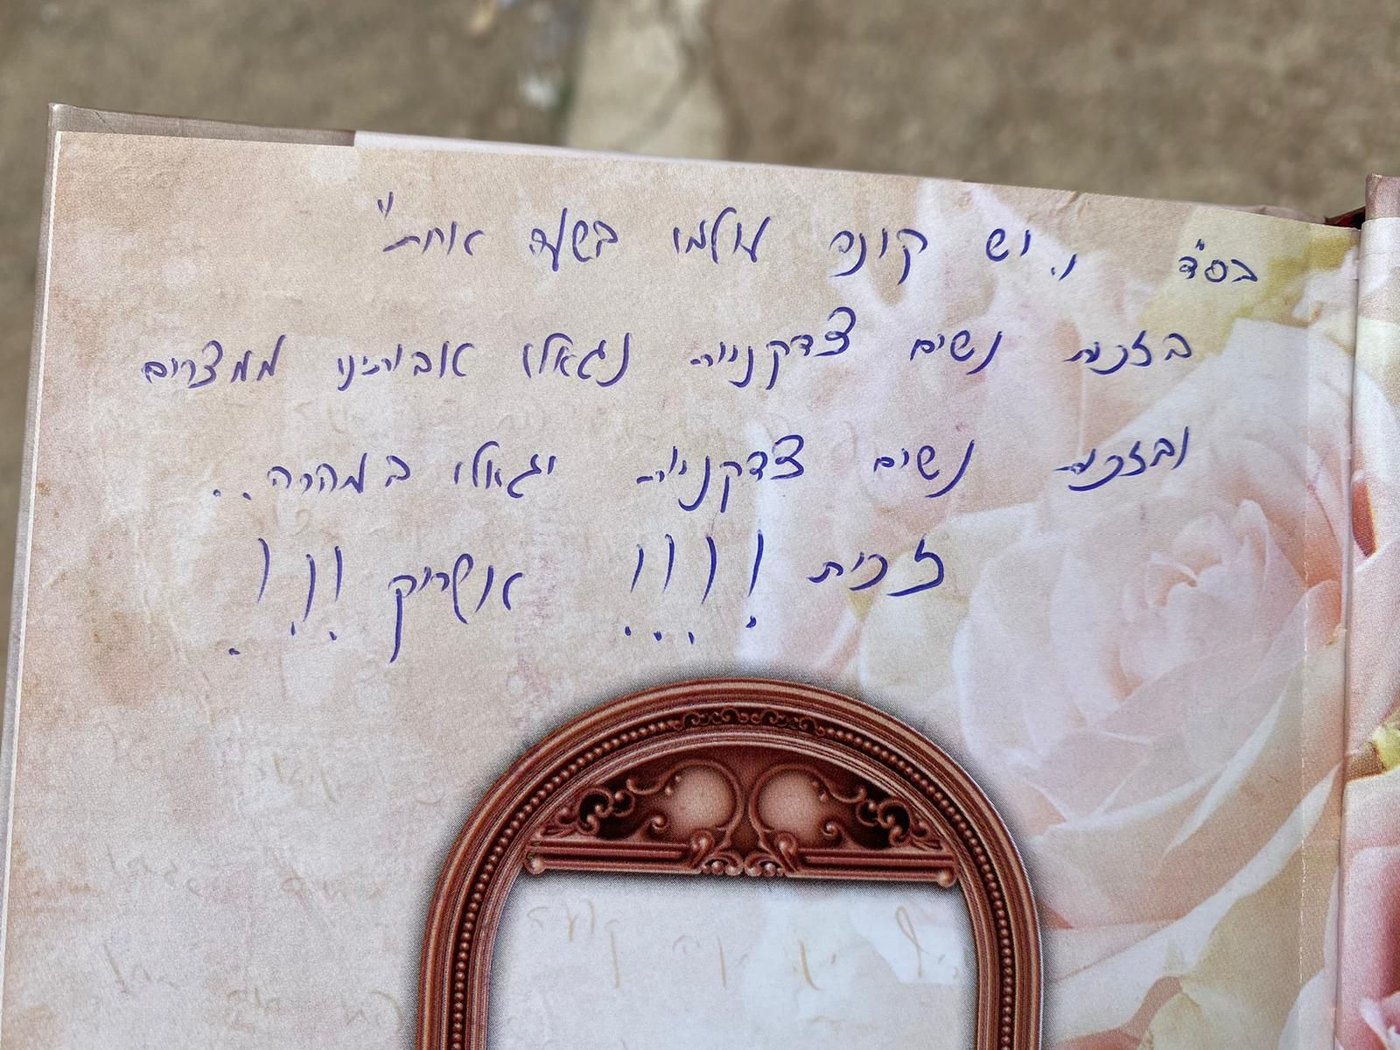 בס"ד ,,יש קונה עולמו בשעה אחת"
בזכות נשים צדקניות נגאלו אבותינו ממצרים
ובזכות נשים צדקניות יגאלו במהרה..
זכית !!!! אשריך !!!